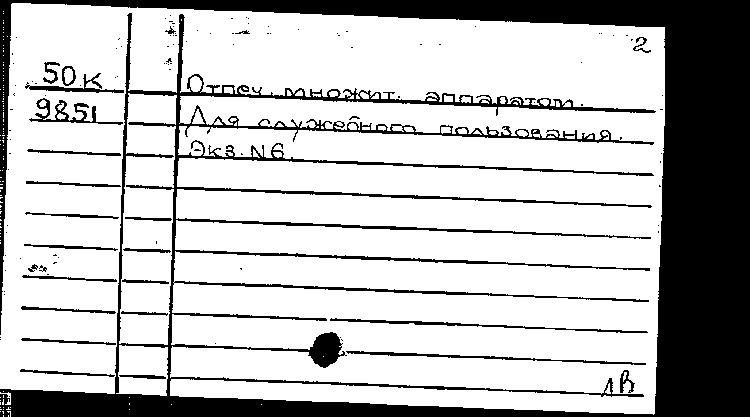 2
50к Отпеч. множит. аппаратом.
9851 Для служебного пользования.
Экз. N6.
1В